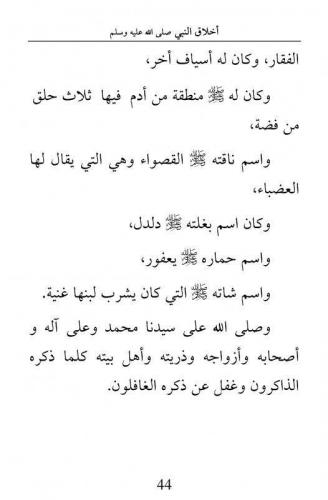 أخلاق النبي صلى الله عليه وسلم
الفقار، وكان له أسياف أخر،
وكان له ﷺ منطقة من أدم فيها ثلاث حلق
من فضة،
واسم ناقته ﷺ القصواء وهي التي يقال لها
العضباء،
وكان اسم بغلته ﷺ دلدل،
واسم حماره ﷺ يعفور،
واسم شاته ﷺ التي كان يشرب لبنها غنية.
وصلى الله على سيدنا محمد وعلى آله و
أصحابه وأزواجه وذريته وأهل بيته كلما ذكره
الذاكرون وغفل عن ذكره الغافلون.
44